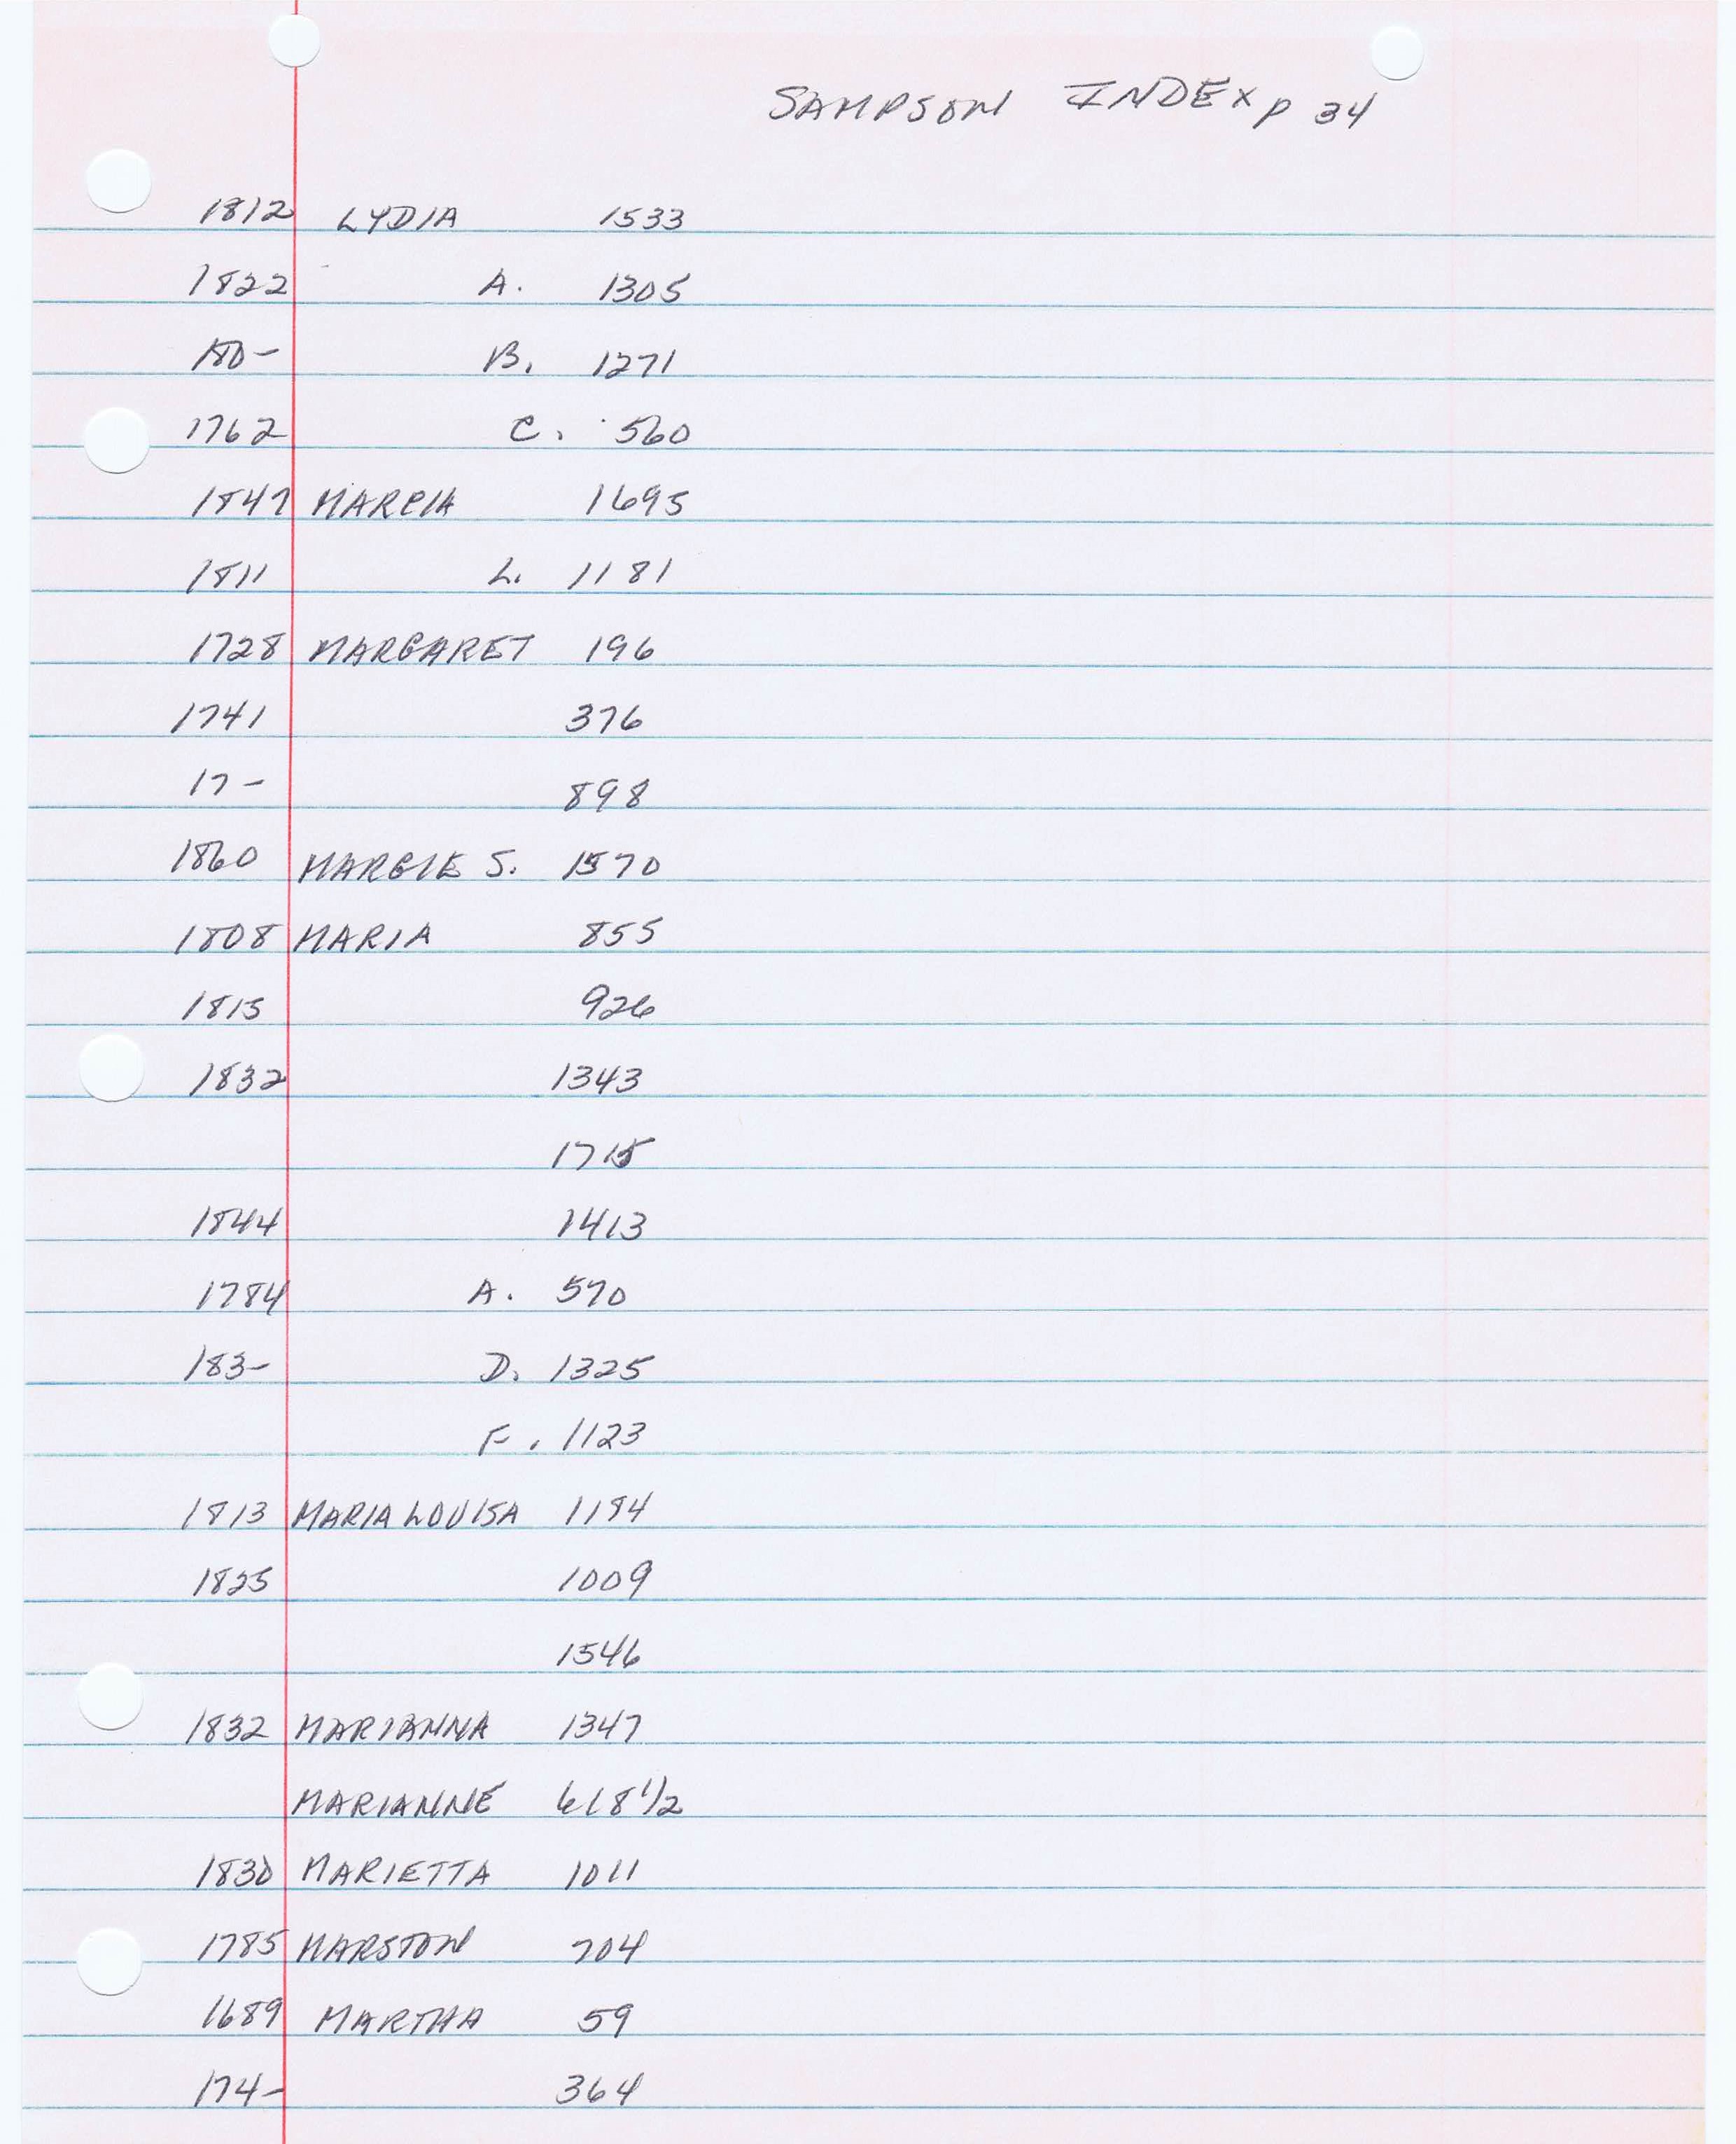 SAMPSON INDEX p 34
1812 LYDIA 1533
1822 A. 1305
180- B. 1271
1762 C. 560
1847 MARCIA 1695
1811 L. 1181
1728 MARGARET 196
1741 376
17- 898
1860 MARGIE S. 1570
1808 MARIA 855
1815 926
1832 1343
1715
1844 1413
1784 A. 570
183- D. 1325
F. 1123
1813 MARIA LOUISA 1184
1825 1009
1546
1832 MARIANNA 1347
MARIANNE 618 1/2
1830 MARIETTA 1011
1785 MARSTON 704
1689 MARTHA 59
174- 364